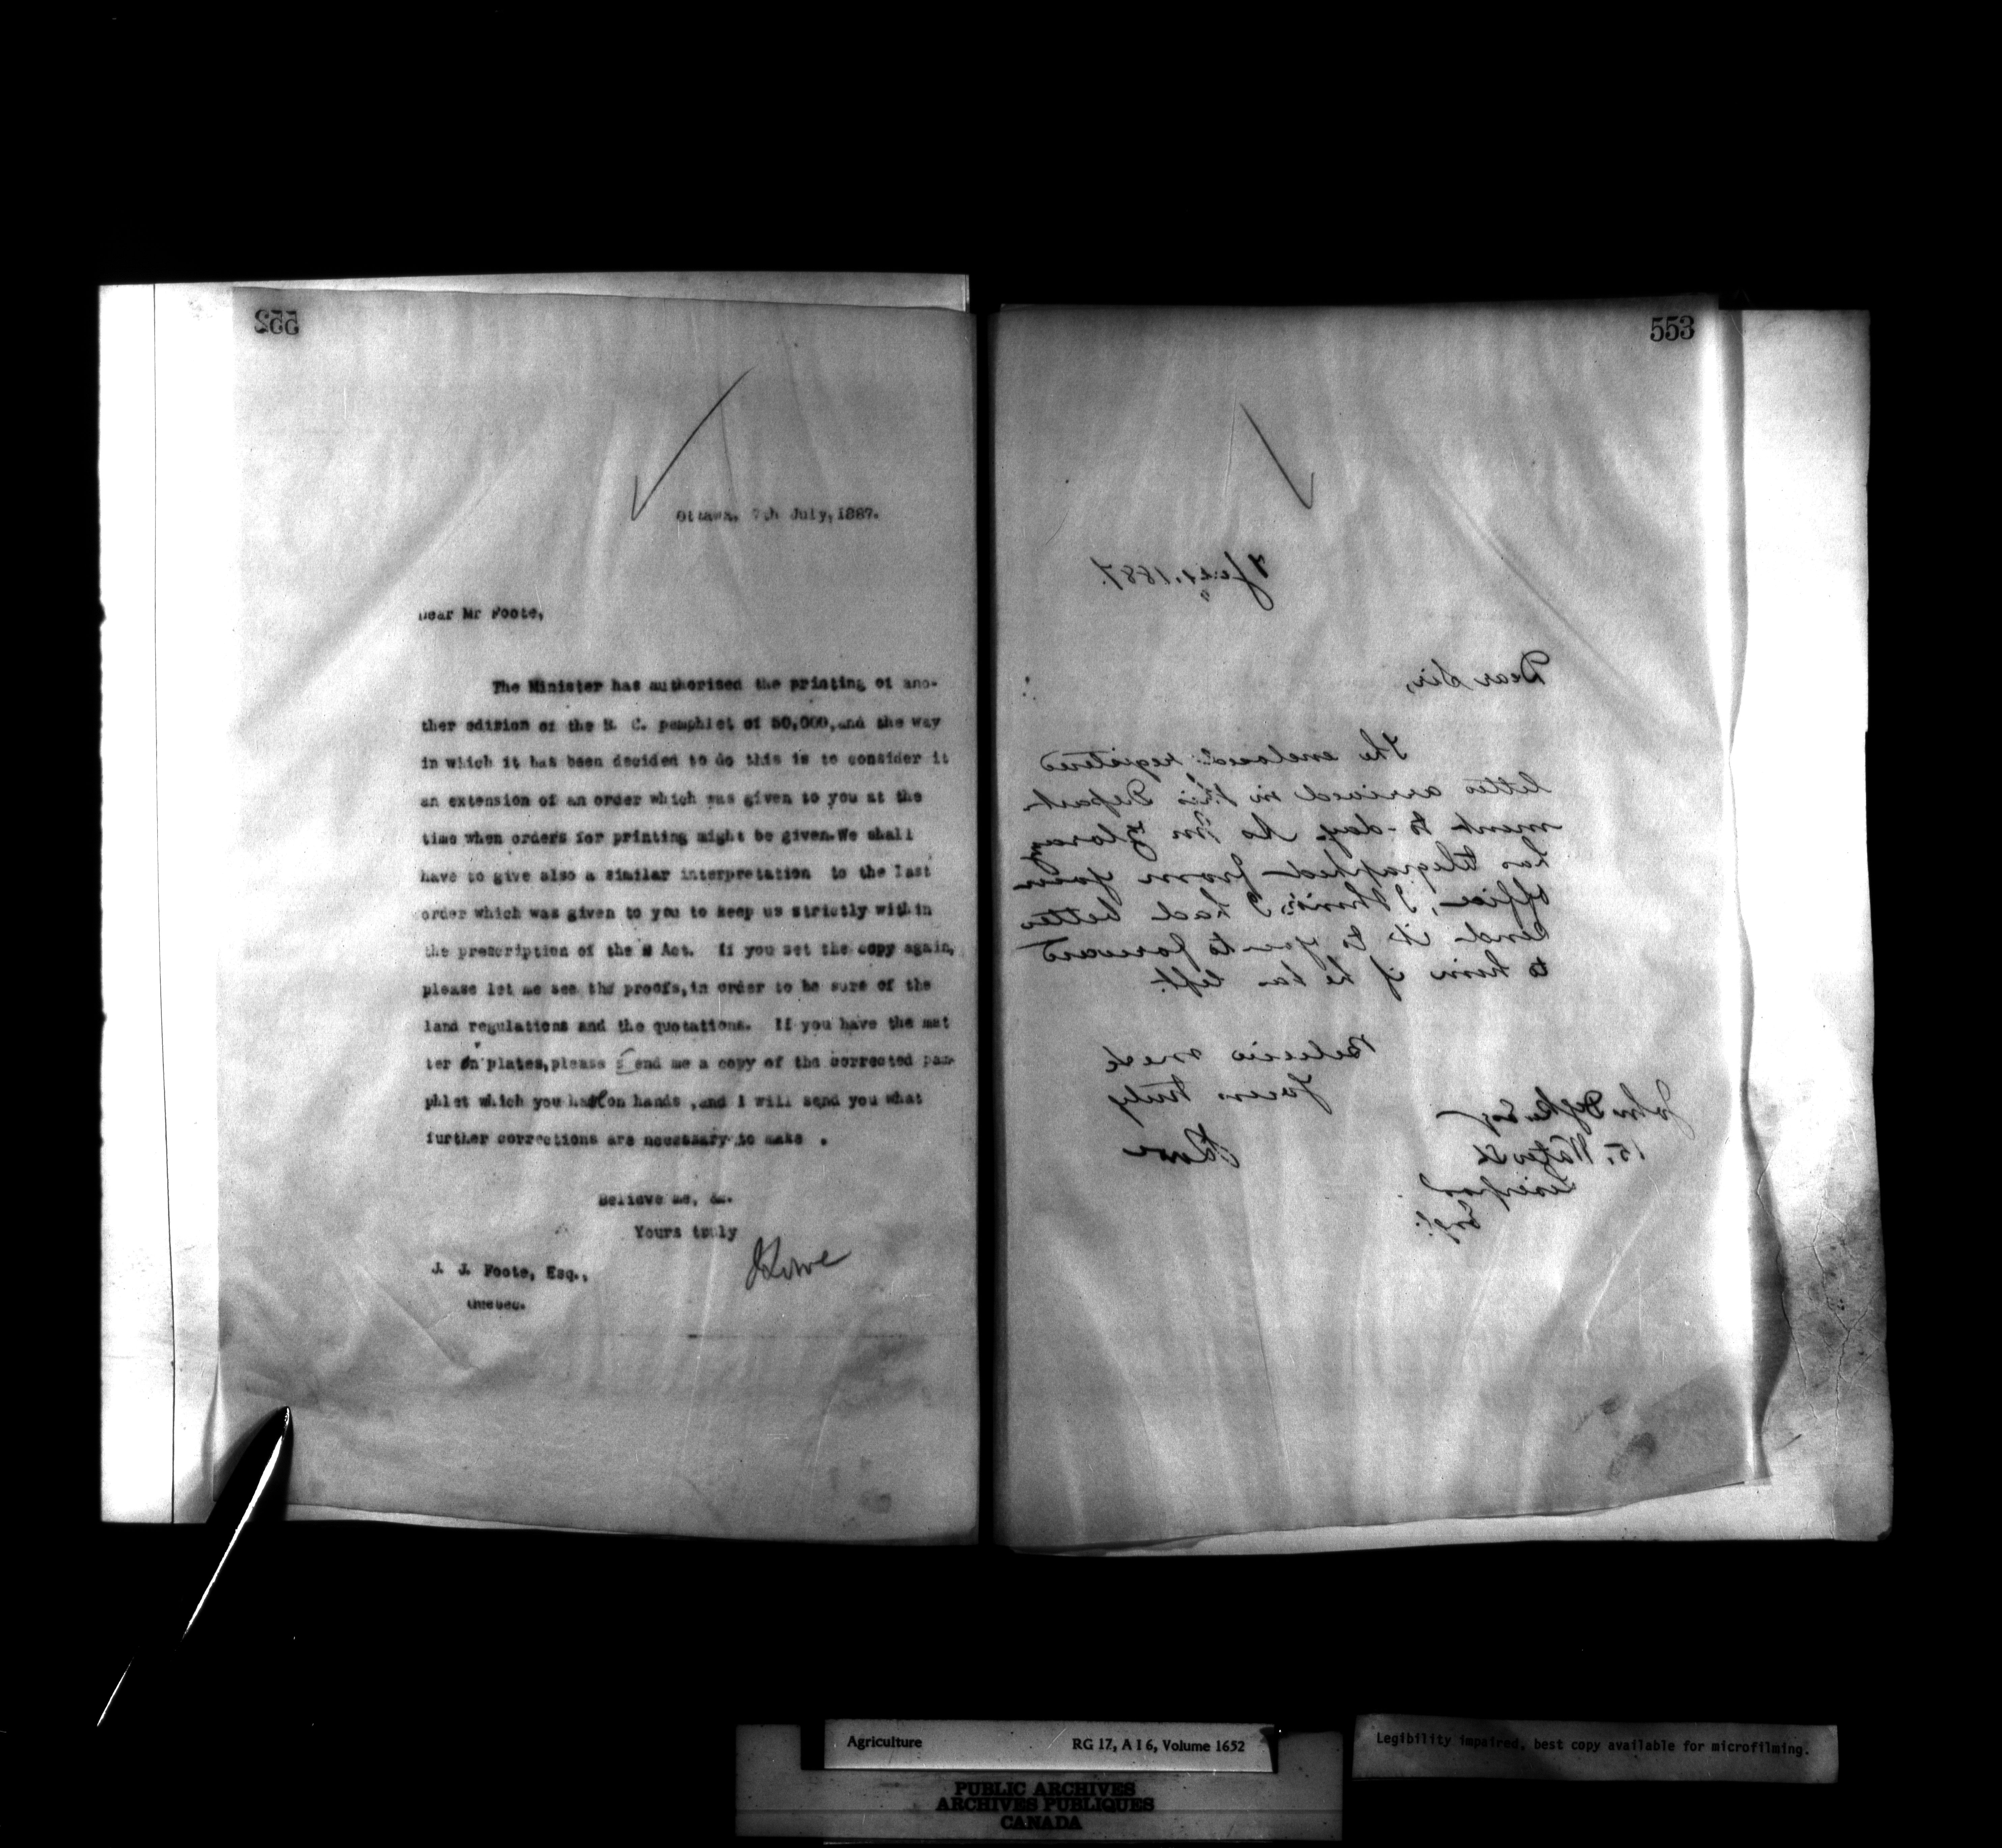 552
Ottawa, 7th July, 1887.
Dear Mr Foote,
The Minister has authorised the printing of ano-
ther edition of the B. C. pamphlet of 50,000, and the way
in which it has been decided to do this is to consider it
an extension of an order which was given to you at the
time when orders for printing might be given. We shall
have to give also a similar interpretation to the last
order which was given to you to keep us strictly within
the prescription of the Act. If you set the copy again,
please let me see the proofs, in order to be sure of the
land regulations and the quotations. If you have the mat
ter on plates, please send me a copy of the corrected pam-
phlet which you had on hands, and I will send you what
further corrections are necessary to make .
Believe me, &.
Yours truly
J Lowe
J. J. Foote, Esq.,
Quebec.
553
7 July, 1887.
Dear Sir,
The enclosed registered
letter arrived in this Depart-
ment to-day. As Mr
has telegraphed from your
office, I think I had better
send it to you to forward
to him if he has left.
Believe me
Yours truly
J Lowe
John Dyke Esq
15, Water St
Liverpool
Eng.
Agriculture RG 17, A I 6, Volume 1652
Legibility impaired, best copy available for microfilming.
PUBLIC ARCHIVES
ARCHIVES PUBLIQUES
CANADA